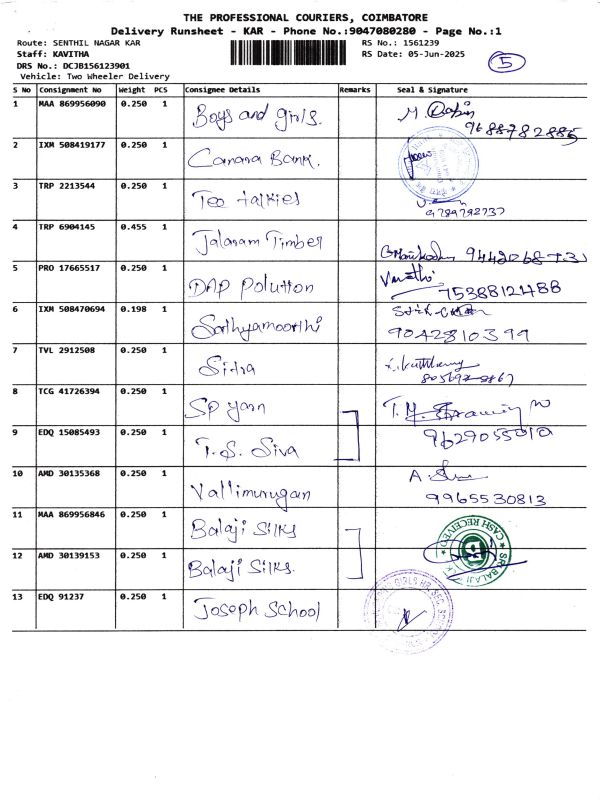 THE PROFESSIONAL COURIERS, COIMBATORE
Delivery Runsheet - KAR - Phone No.:9047080280 - Page No.:1
Route: SENTHIL NAGAR KAR RS No.: 1561239
Staff: KAVITHA RS Date: 05-Jun-2025 5
DRS No.: DCJB156123901
Vehicle: Two Wheeler Delivery
S No Consignment No Weight PCS Consignee Details Remarks Seal & Signature
1 MAA 869956090 0.250 1 Boys and girls.
9688782885
2 IXM 508419177 0.250 1 Canara Bank.
3 TRP 2213544 0.250 1 Teo talkies
9789792737
4 TRP 6904145 0.455 1 Jalaram Timber
5 PRO 17665517 0.250 1 DAP Polution
7538812488
6 IXM 508470694 0.198 1 Sathyamoorthi
9042810399
7 TVL 2912508 0.250 1 Sitra
8 TCG 41726394 0.250 1 SP yarn
9 EDQ 15085493 0.250 1 T.S. Siva
10 AMD 30135368 0.250 1 Vallimurugan
9965530813
11 MAA 869956846 0.250 1 Balaji Silks
CASH RECEIVED
12 AMD 30139153 0.250 1 Balaji Silks.
SRI BALAJI
13 EDQ 91237 0.250 1 Joseph School
GIRLS HR. SEC. SCHOOL